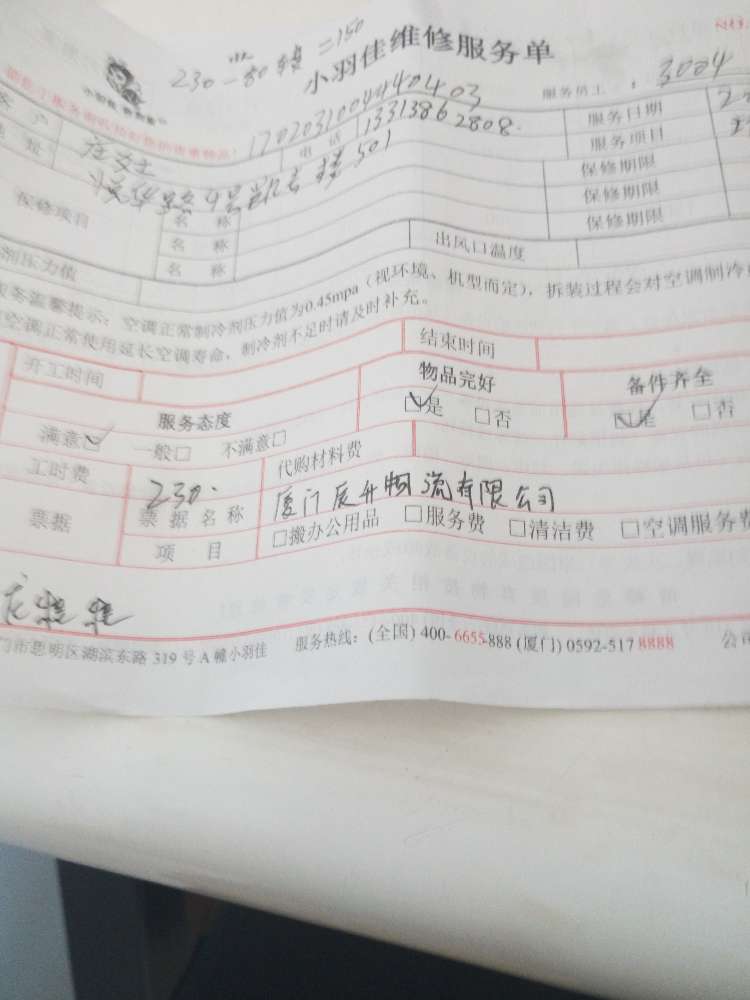 230 80 = 150
小羽佳维修服务单
服务员工 : 3004
17020310044440403
电话 13313862808.
服务日期
服务项目
9号 501
保修期限
保修项目 名称
保修期限
名称
保修期限
名称
剂压力值 出风口温度
服务温馨提示:空调正常制冷剂压力值为0.45mpa(视环境、机型而定),拆装过程会对空调制冷
空调正常使用延长空调寿命,制冷剂不足时请及时补充。
开工时间 结束时间
服务态度 物品完好 备件齐全
满意☑ 一般□ 不满意□ ☑是 □否 ☑是 □否
工时费 230. 代购材料费
票据 票据名称 厦门辰升物流有限公司
项目 □搬办公用品 □服务费 □清洁费 □空调服务费
门市思明区湖滨东路 319 号 A 幢小羽佳 服务热线:(全国) 400-6655-888 (厦门) 0592-5178888 公司